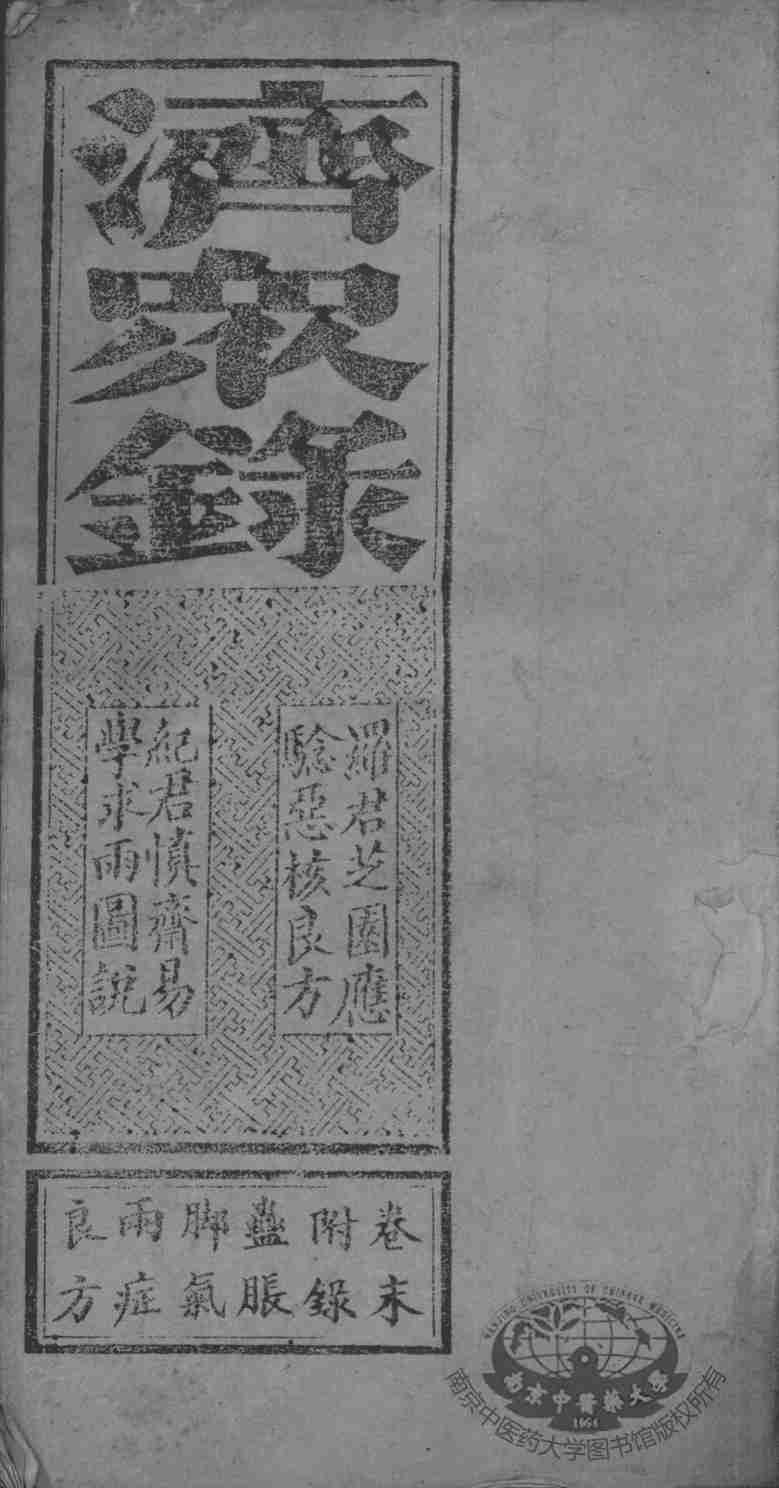 濟眾錄
羅君芝園應
騐惡核良方
紀君慎齋易
學求雨圖說
卷末
附錄
蠱脹
脚氣
兩症
良方
NANJING UNIVERSITY OF CHINESE MEDICINE
南京中醫藥大學
1954
南京中医药大学图书馆版权所有